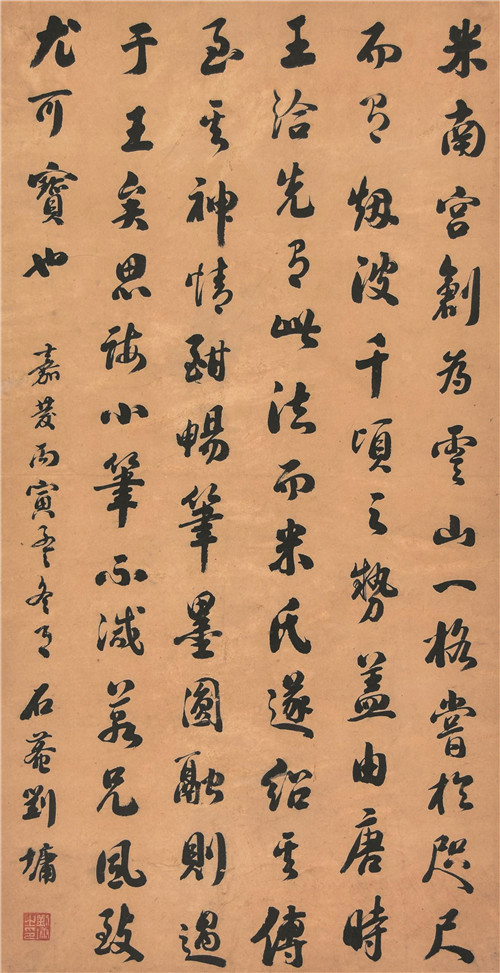 米南宮創為雲山一格嘗於咫尺
而有煙波千頃之勢蓋由唐時
王洽先有此法而米氏遂紹其傳
至其神情酣暢筆墨圓融則過
于王矣思誨小筆不減若兄風致
尤可寶也
嘉慶丙寅孟冬月 石菴劉墉